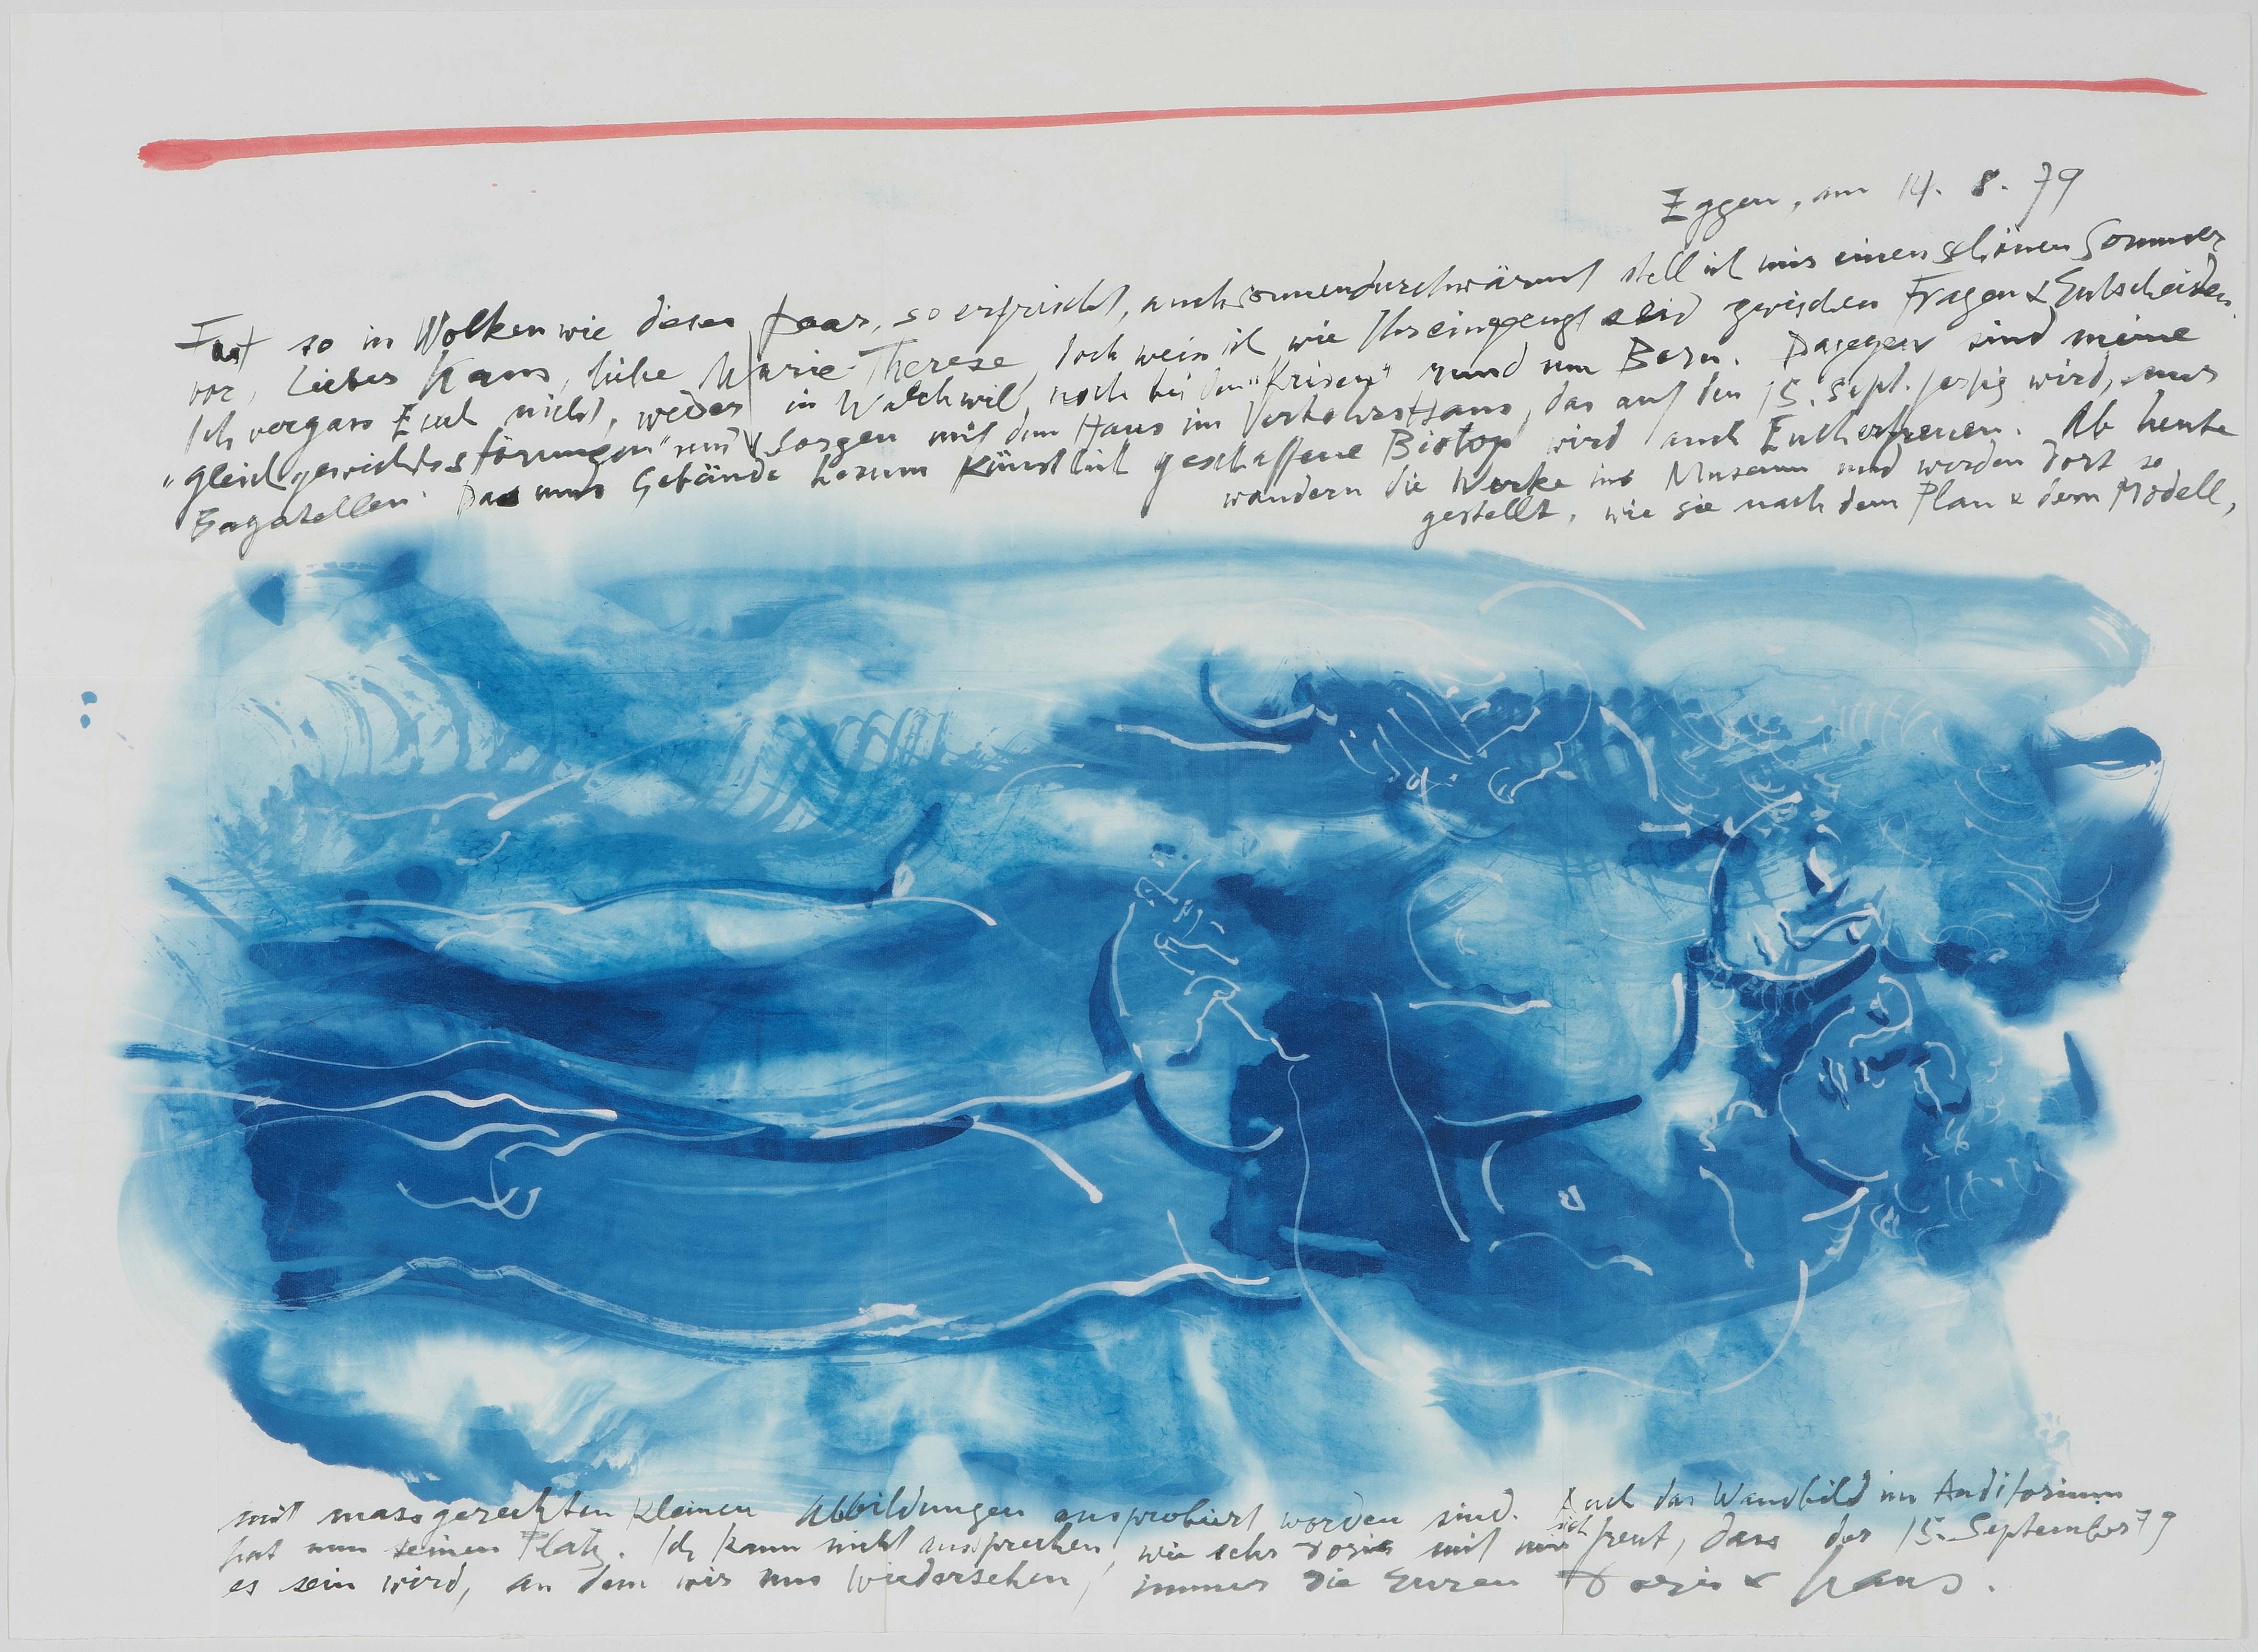 Eggen, am 14. 8. 79
Fast so in Wolken wie dieses Paar, so erfrischt, auch sonnendurchwärmt stell ich mir einen schönen Sommer
vor, lieber Hans, liebe Marie-Therese, doch weiss ich wie Ihr eingeengt seid zwischen Fragen & Entscheiden.
Ich vergass Euch nicht, weder in Walchwil, noch bei den "Krisen" rund um Bern. Dagegen sind meine
"gleichgewichtsstörungen" und Sorgen mit dem Haus im Verkehrshaus, das auf den 15. Sept. fertig wird, nur
Bagatellen. Das ums Gebäude herum künstlich geschaffene Biotop wird auch Euch erfreuen. Ab heute
wandern die Werke ins Museum und werden dort so
gestellt, wie sie nach dem Plan & dem Modell,
mit massgerechten kleinen Abbildungen ausprobiert worden sind. Auch das Wandbild im Auditorium
hat nun seinen Platz. Ich kann nicht aussprechen, wie sehr Doris mit mir sich freut, dass der 15. September 79
es sein wird, an dem wir uns wiedersehen, immer die Euren Doris & Hans.